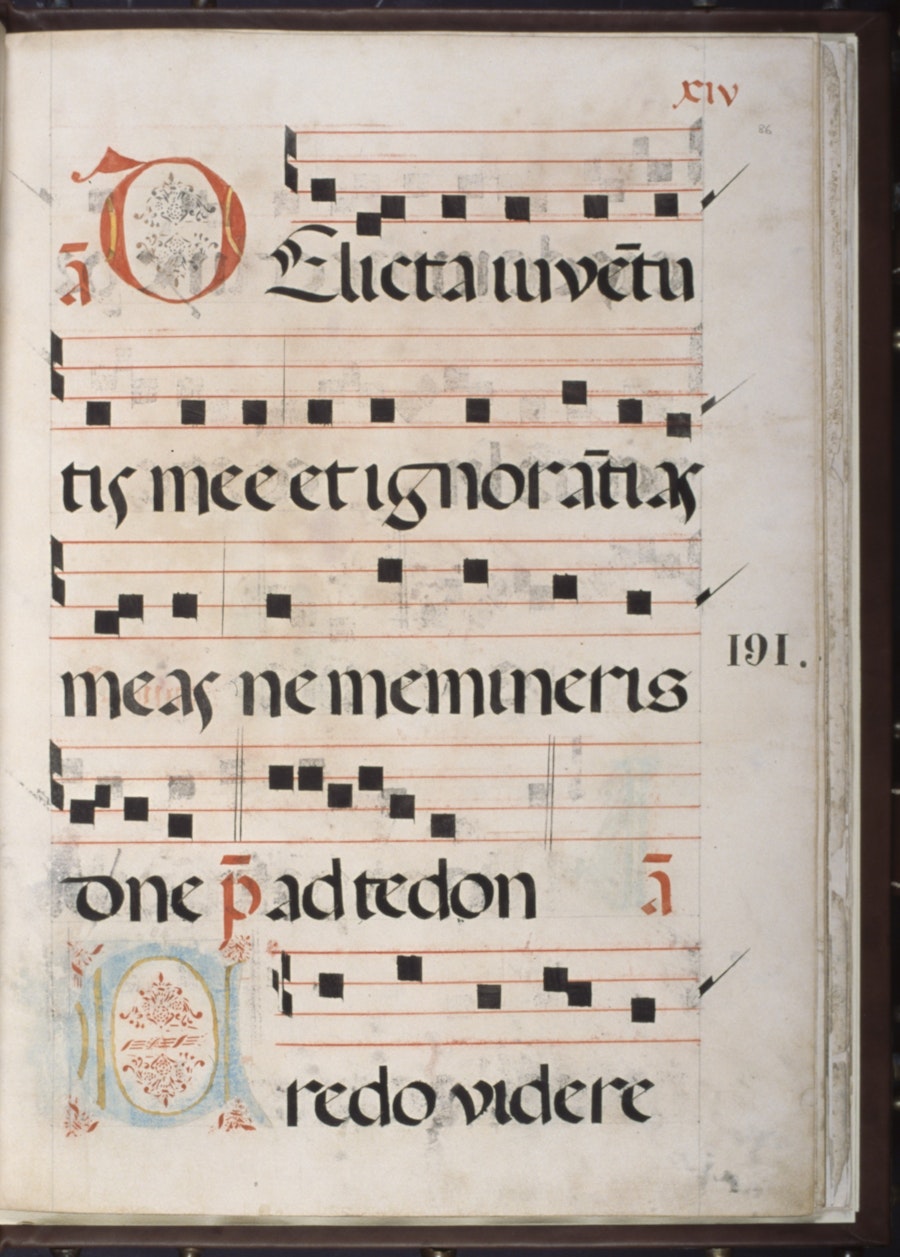 xiv
86
ā DElicta iuvētu
tis mee et ignorātias
meas ne memineris
dne p̄ ad te don ā
Credo videre
191.